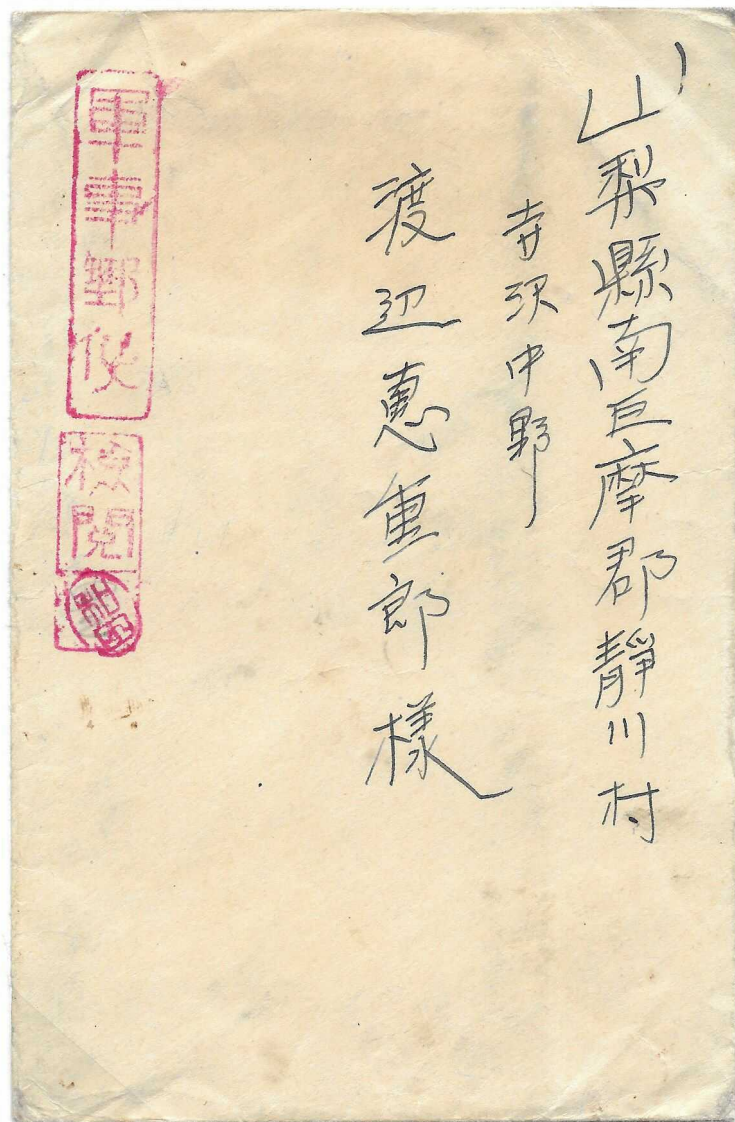 山梨縣南巨摩郡靜川村
寺沢中野
渡辺恵重郎様
軍事郵便
検閲